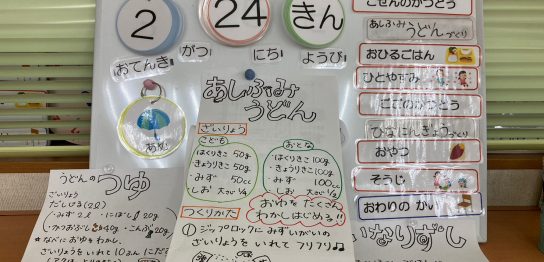 2
24
きん
がつ
にち
ようび
おてんき
あめ
ごぜんのかつどう
あしふみうどんづくり
おひるごはん
ひとやすみ
ごごのかつどう
ひなにんぎょうづくり
おやつ
そうじ
おわりのかい
あしふみ
うどん
ざいりょう
こども
はくりきこ 50g
きょうりきこ 50g
・みず 50cc
おとな
はくりきこ 100g
・きょうりきこ 100g
・みず 100cc
しお
おゆをたくさん
わかしはじめる!!
つくりかた
① ジップロックに みずいがいの
ざいりょうを いれて フリフリ♫
うどんの つゆ
ざいりょう
だしじる(2ℓ)
・みず2ℓ ・にぼし 20g
・かつおぶし 40g ・こんぶ 20g
★なべに おゆを わかし、
ざいりょうをいれて 10ぷん
いなりずし